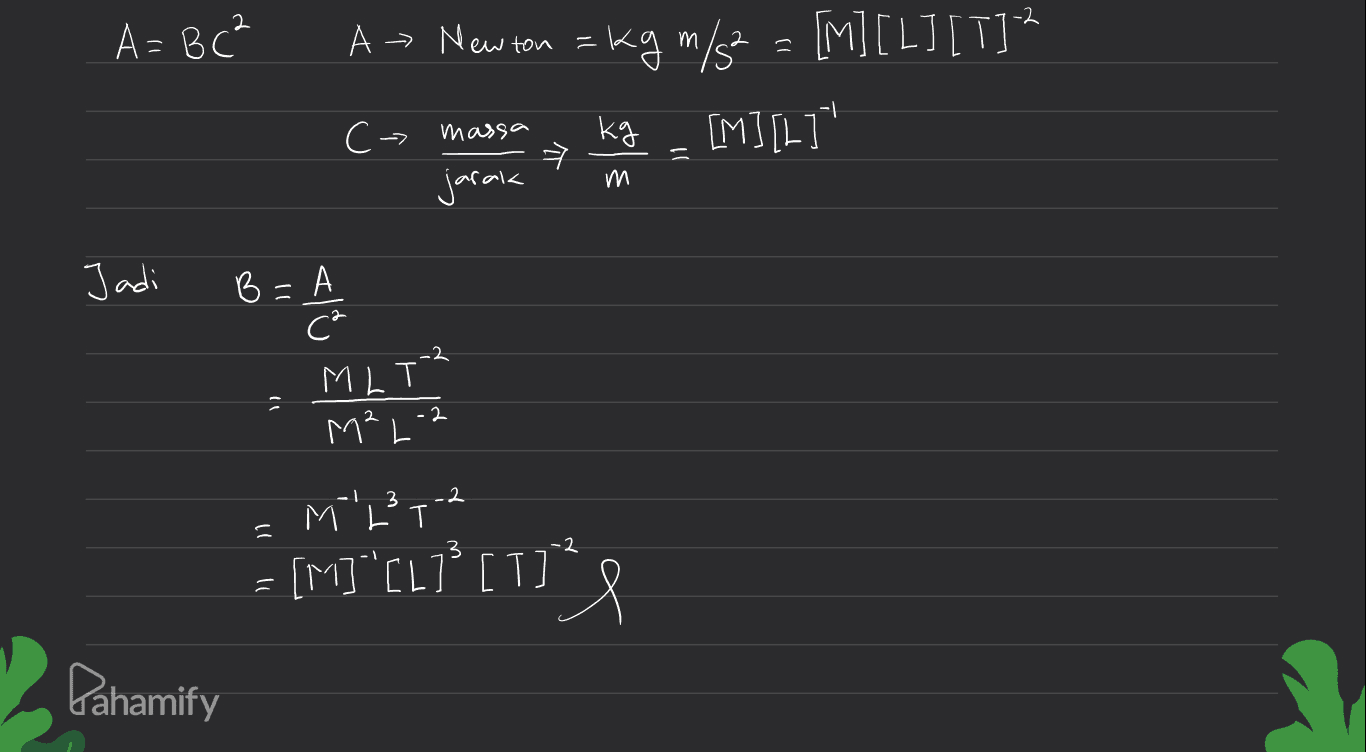 A = BC² A → Newton = kg m/s² = [M][L][T]⁻²
C → massa/jarak ⇒ kg/m = [M][L]⁻¹
Jadi B = A/C²
= MLT⁻²/M²L⁻²
= M⁻¹L³T⁻²
= [M]⁻¹[L]³[T]⁻²
Pahamify